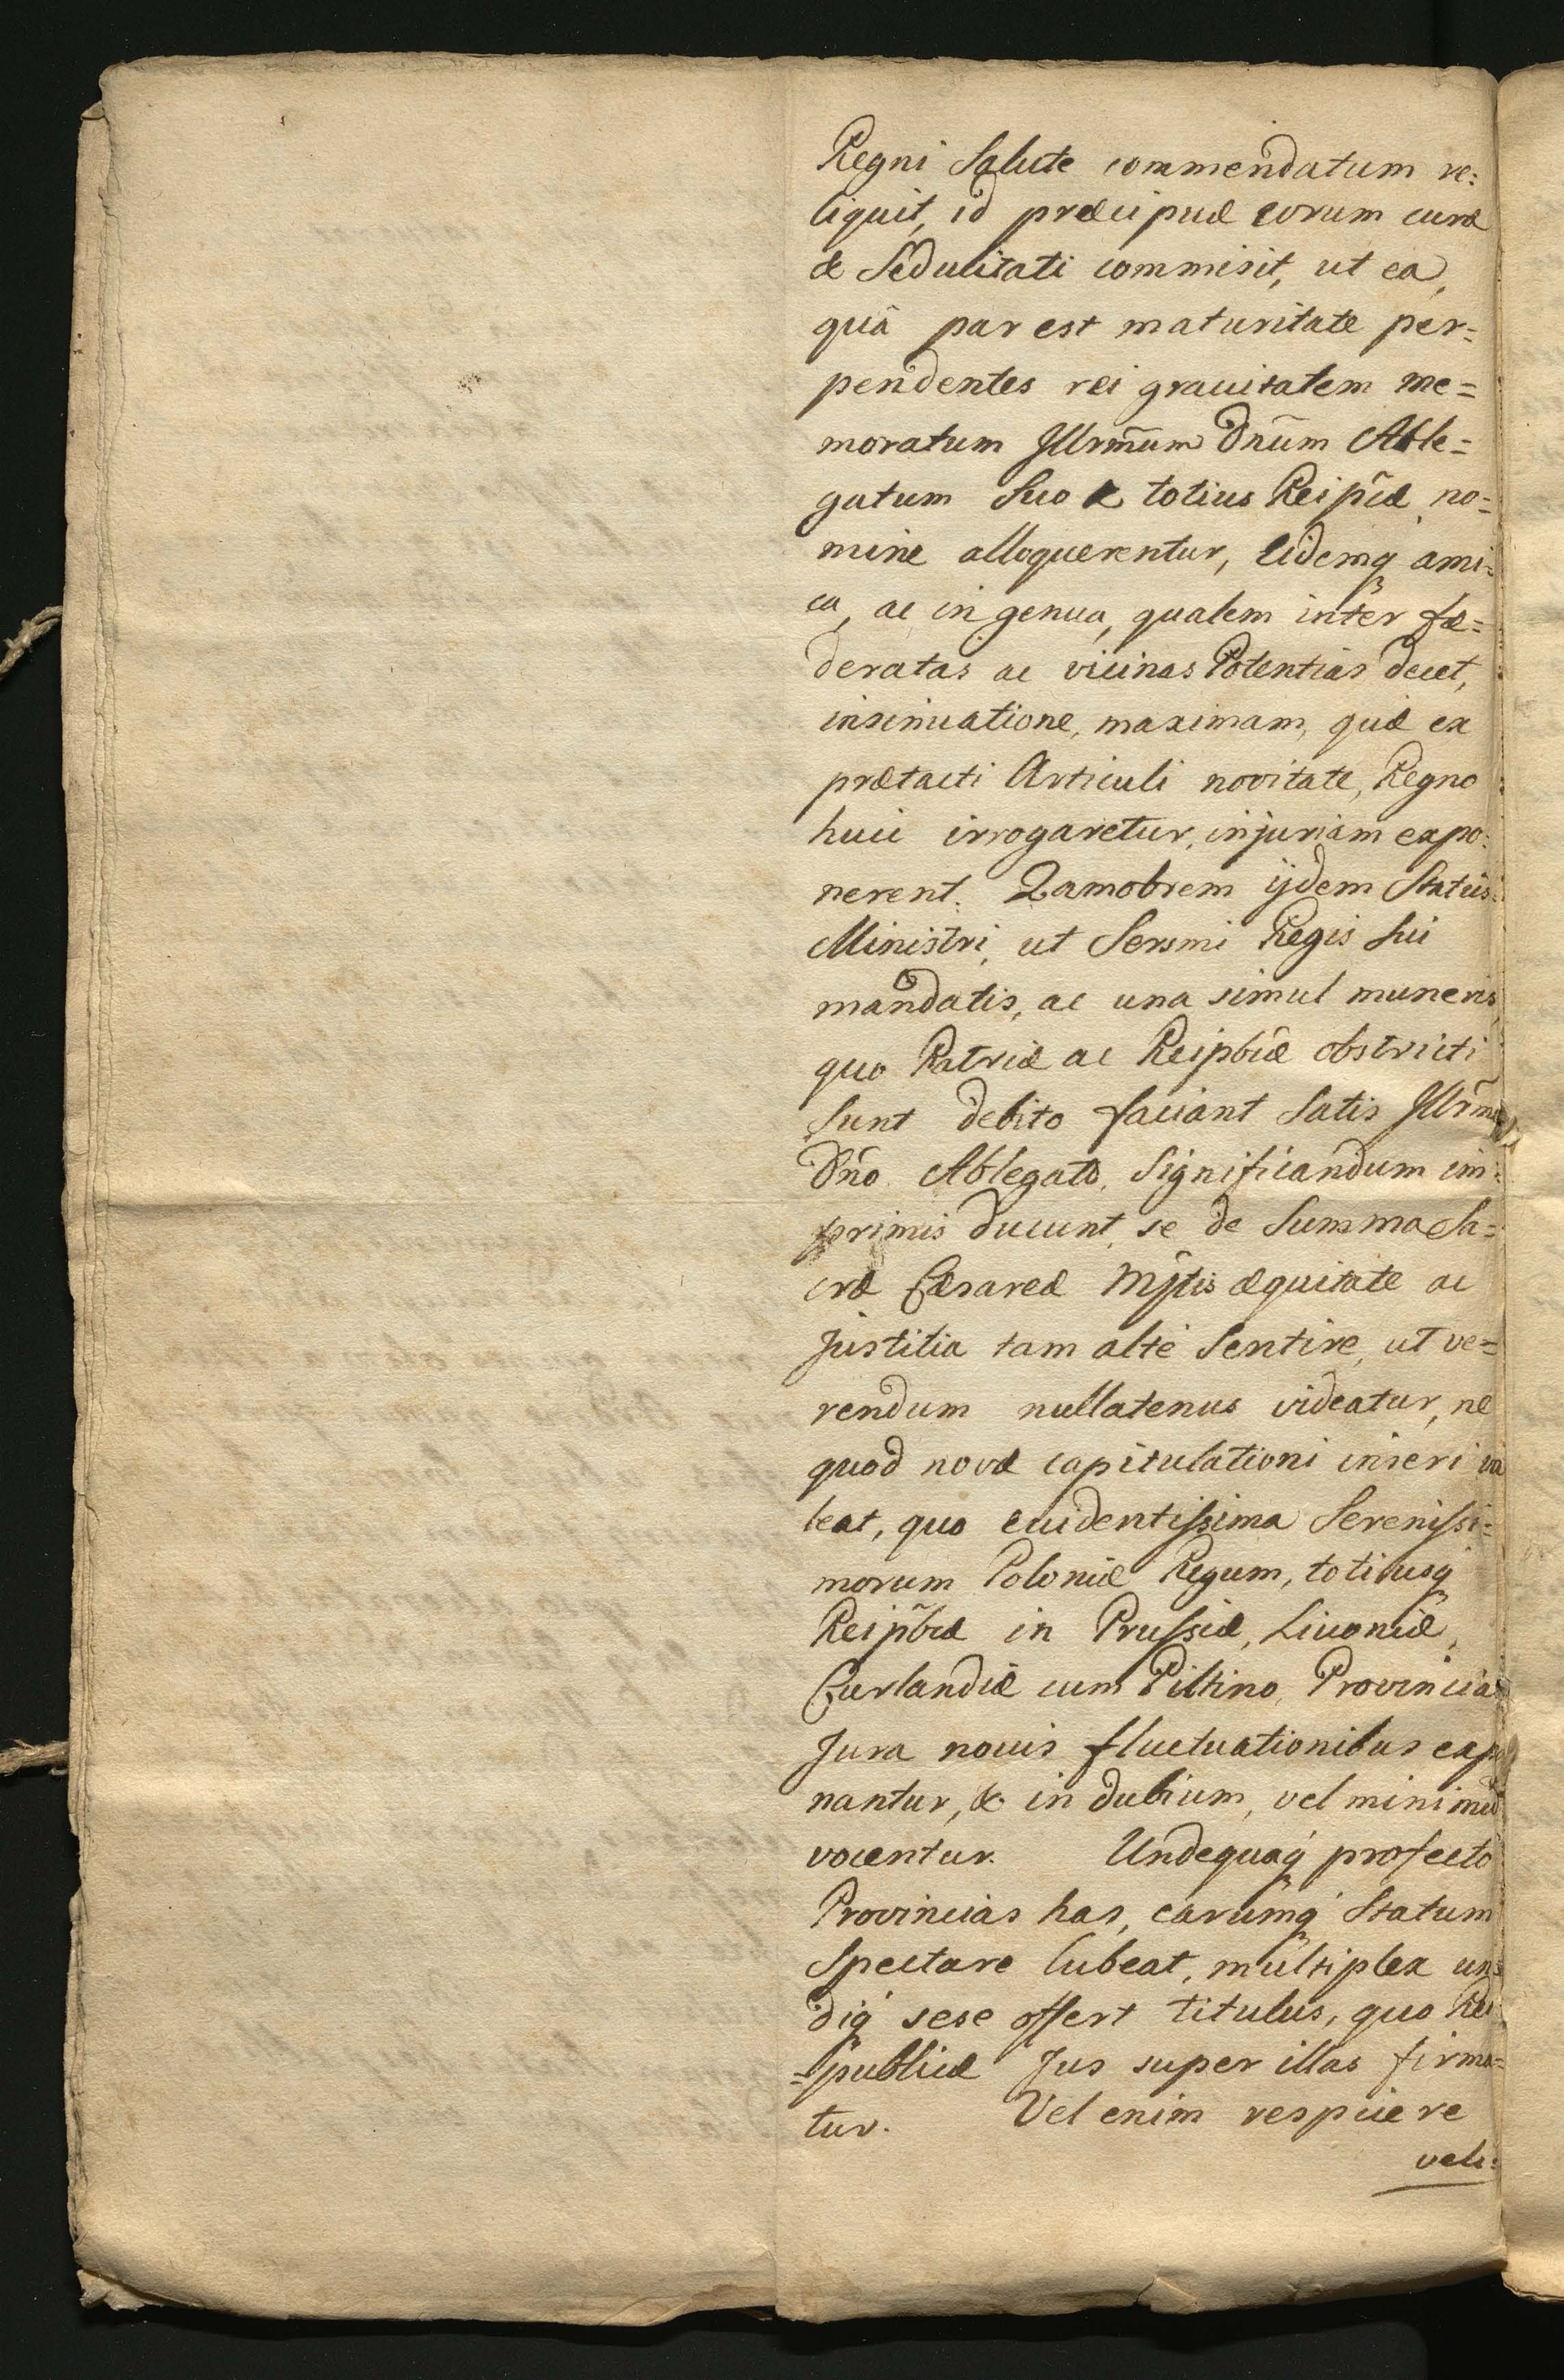 Regni Salute commendatum re:
liquit, id præcipuæ eorum curæ
& Sedulitati commisit, ut ea,
quâ par est maturitate per=
pendentes rei grauitatem me=
moratum Jllrm̃um Dñum Able=
gatum Suo & totius Reip̃cæ no=
mine alloquerentur, Eidemq́ ami=
ca, ac ingenua, qualem inter fæ=
deratas ac vicinas Potentias decet,
insinuatione, maximam, quæ ex
prætacti Articuli novitate, Regno
huic irrogaretur, injuriam expo=
nerent. Qamobrem ijdem Statûs
Ministri, ut Sersmi Regis Sui
mandatis, ac una simul muneris,
quo Patriæ ac Reipbcæ obstricti
Sunt debito faciant Satis Jllr̃mo
Dño Ablegato, Significandum im=
primis ducunt, se de Summa Sa=
cræ Cæsareæ Mjtis æquitate ac
Justitia tam altè Sentire, ut ve=
rendum nullatenus videatur, ne
quod novæ capitulationi inseri va
leat, quo euidentissima Serenissi=
morum Poloniæ Regum, totiusq́
Reip̃bcæ in Prussiæ, Liuoniæ,
Curlandiæ cum Piltino, Provincias
Jura nouis fluctuationibus expo
nantur, & in dubium, vel minimum
vocentur. Undequaq́ profecto
Provincias has, earumq́ Statum
Spectare lubeat, multiplex un=
diq́ sese offert titulus, quo Rei
=publicæ Jus super illas firma=
tur. Vel enim respicere
veli=